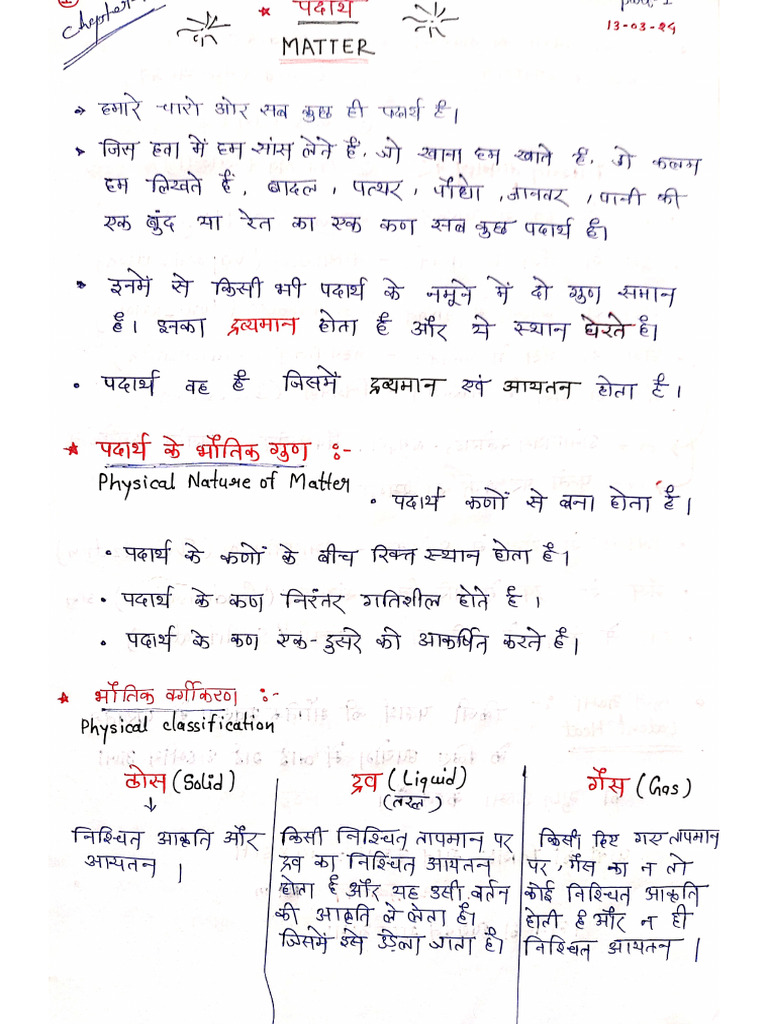 Chapter
* पदार्थ
Part-1
MATTER
13-03-24
→ हमारे चारो ओर सब कुछ ही पदार्थ है।
→ जिस हवा में हम सांस लेते हैं, जो खाना हम खाते हैं, जो कलम
हम लिखते हैं, बादल, पत्थर, पौधो, जानवर, पानी की
एक बुंद या रेत का एक कण सब कुछ पदार्थ है।
• इनमें से किसी भी पदार्थ के नमूने में दो गुण समान
है। इनका द्रव्यमान होता है और ये स्थान घेरते है।
• पदार्थ वह है जिसमें द्रव्यमान एवं आयतन होता है।
* पदार्थ के भौतिक गुण :-
Physical Nature of Matter
• पदार्थ कणों से बना होता है।
• पदार्थ के कणों के बीच रिक्त स्थान होता है।
• पदार्थ के कण निरंतर गतिशील होते है।
• पदार्थ के कण एक-दुसरे को आकर्षित करते है।
* भौतिक वर्गीकरण :-
Physical classification
ठोस (Solid)
↓
निश्चित आकृति और
आयतन।
द्रव (Liquid)
(तरल)
किसी निश्चित तापमान पर
द्रव का निश्चित आयतन
होता है और यह उसी बर्तन
की आकृति ले लेता है।
जिसमें इसे उड़ेला जाता है।
गैस (Gas)
किसी दिए गए तापमान
पर, गैस का न तो
कोई निश्चित आकृति
होती है और न ही
निश्चित आयतन।